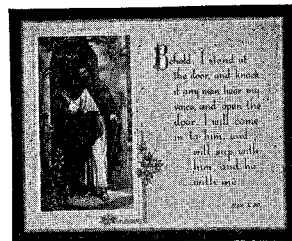 Behold, I stand at
the door, and knock
if any man hear my
voice, and open the
door, I will come
in to him, and
will sup with
him, and he
with me